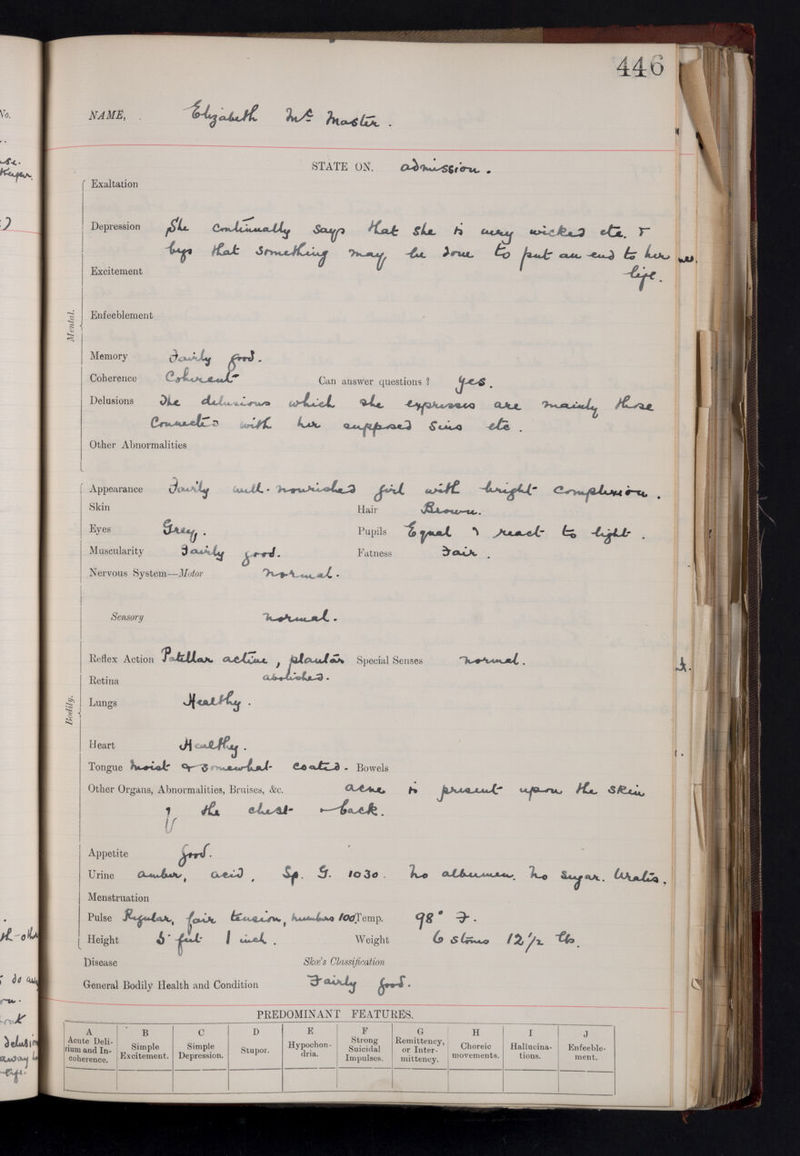 446
NAME, . Elizabeth Mc Master.
STATE ON. admission.
Mental.
Exaltation
Depression She continually says that she is very wicked etc. &
begs that something may be done to put an end to her
life.
Excitement
Enfeeblement
Memory Fairly good.
Coherence Coherent Can answer questions? Yes.
Delusions The delusions which she expresses are mainly those
connected with her supposed sins etc.
Other Abnormalities
Bodily.
Appearance Fairly well-nourished girl with bright complexion.
Skin Hair Brown.
Eyes Grey. Pupils Equal & react to light.
Muscularity Fairly good. Fatness Fair.
Nervous System—Motor Normal.
Sensory Normal.
Reflex Action Patellar active, plantar Special Senses Normal.
abolished.
Retina
Lungs Healthy.
Heart Healthy.
Tongue Moist & somewhat coated. Bowels
Other Organs, Abnormalities, Bruises, &c. Acne is present upon the skin
of the chest & back.
Appetite Good.
Urine Amber, acid, Sp. G. 1030. No albumen. No sugar. Urates.
Menstruation
Pulse Regular, fair tension, numbers 100 Temp. 98° F.
Height 5 feet 1 inch. Weight 6 stones 12 1/2 lbs.
Disease Skæ's Classification
General Bodily Health and Condition Fairly good.
PREDOMINANT FEATURES.
A B C D E F G H I J
Acute Delirium and Incoherence. Simple Excitement. Simple Depression. Stupor. Hypochondria. Strong Suicidal Impulses. Remittency, or Intermittency. Choreic movements. Hallucinations. Enfeeblement.